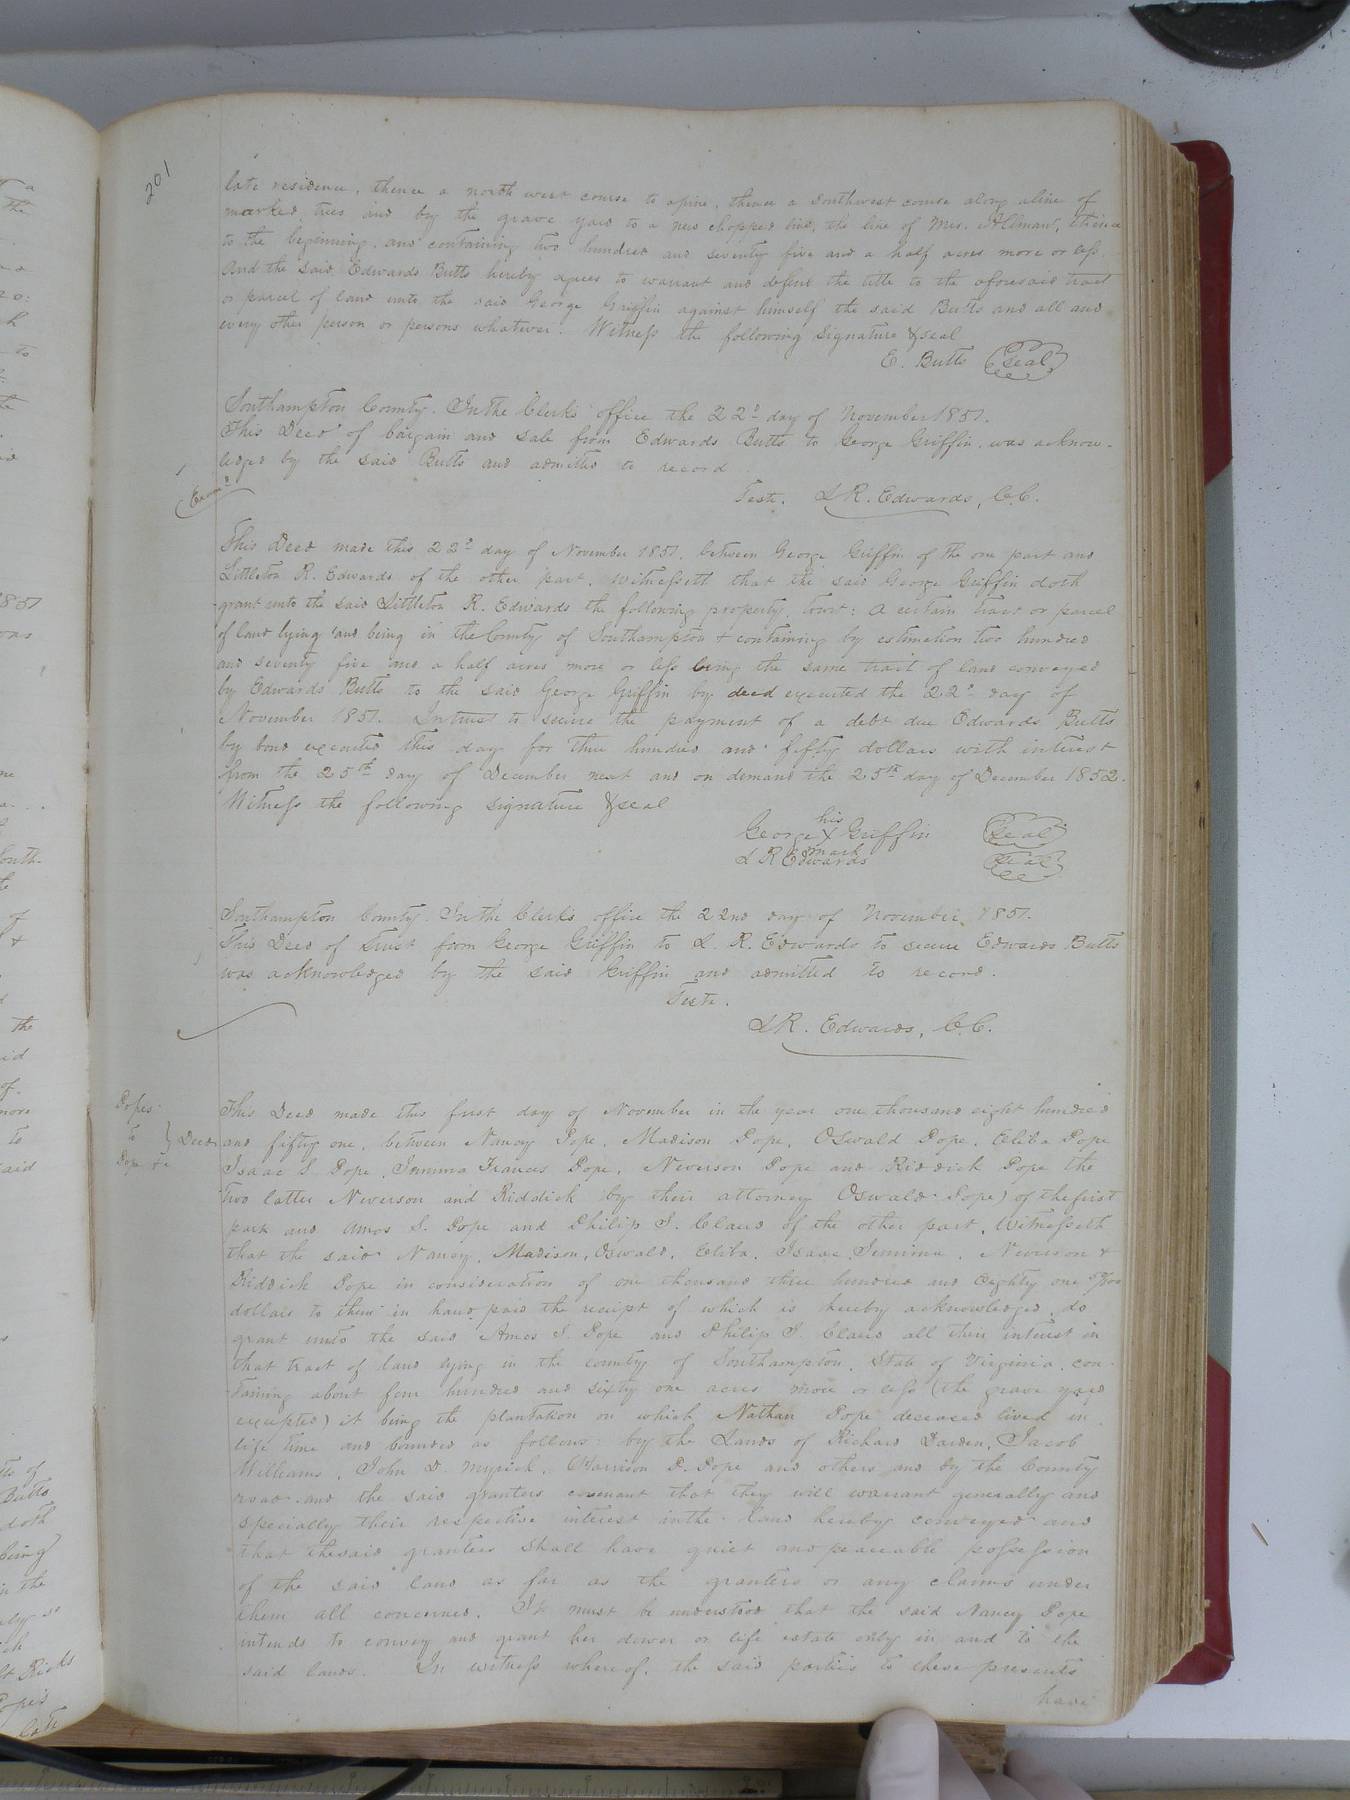 201
late residence, thence a north west course to a pine, thence a southwest course along a line of
marked trees and by the grave yard to a new chopped line, the line of Mrs. thence
to the beginning, and containing two hundred and seventy five and a half acres more or less.
And the said Edwards Butts hereby agrees to warrant and defend the title to the aforesaid tract
or parcel of land unto the said George Griffin against himself the said Butts and all and
every other person or persons whatever. Witness the following signature & seal
E. Butts Seal
Southampton County. In the Clerks office the 22d day of November 1851.
This Deed of bargain and sale from Edwards Butts to George Griffin was acknow-
ledged by the said Butts and admitted to record
Teste. L R. Edwards, C.C.
Exam'd
This Deed made this 22d day of November 1851. between George Griffin of the one part and
Littleton R. Edwards of the other part. Witnesseth that the said George Griffin doth
grant unto the said Littleton R. Edwards the following property, towit: A certain tract or parcel
of land lying and being in the County of Southampton & containing by estimation two hundred
and seventy five and a half acres more or less being the same tract of land conveyed
by Edwards Butts to the said George Griffin by deed executed the 22d day of
November 1851. In trust to secure the payment of a debt due Edwards Butts
by bond executed this day for three hundred and fifty dollars with interest
from the 25th day of December next and on demand the 25th day of December 1852.
Witness the following signature & seal
his
George X Griffin Seal
mark
L R Edwards Seal
Southampton County. In the Clerk's office the 22nd day of November 1851.
This Deed of Trust from George Griffin to L. R. Edwards to secure Edwards Butts
was acknowledged by the said Griffin and admitted to record.
Teste.
L R. Edwards, C.C.
Popes
to } Deed
Pope &c
This Deed made this first day of November in the year one thousand eight hundred
and fifty one, between Nancy Pope, Madison Pope, Oswald Pope, Eliba Pope
Isaac S. Pope, Jemima Frances Pope, Neverson Pope and Riddick Pope the
two latter Neverson and Riddick by their attorney Oswald Pope) of the first
part and Amos S. Pope and Philip S. Claud of the other part, Witnesseth
that the said Nancy, Madison, Oswald, Eliba, Isaac, Jemima, Neverson &
Riddick Pope in consideration of one thousand three hundred and eighty one
dollars to them in hand paid the receipt of which is hereby acknowledged, do
grant unto the said Amos S. Pope and Philip S. Claud all their interest in
that tract of land lying in the county of Southampton, State of Virginia, con-
taining about four hundred and sixty one acres more or less (the grave yard
excepted) it being the plantation on which Nathan Pope deceased lived in
life time and bounded as follows: by the Lands of Richard Darden, Jacob
Williams, John D. Myrick, Harrison P. Pope and others and by the County
road. and the said granters covenant that they will warrant generally and
specially their respective interest in the land hereby conveyed and
that the said grantees shall have quiet and peaceable possession
of the said land as far as the granters or any claims under
them all concerned. It must be understood that the said Nancy Pope
intends to convey and grant her dower or life estate only in and to the
said lands. In witness whereof, the said parties to these presents
have